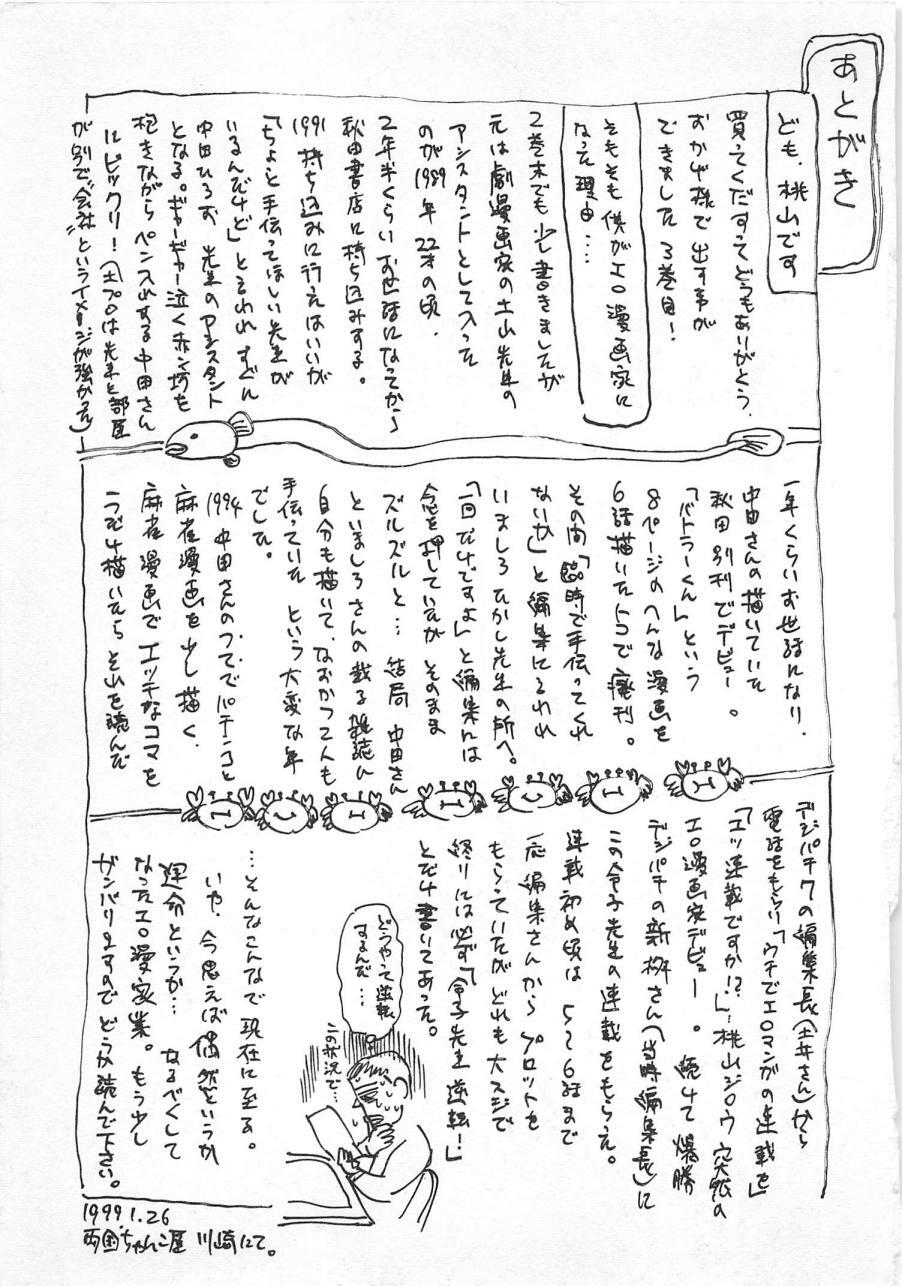 あとがき
ども、桃山です
買ってくだすってどうもありがとう。
おかげ様で出す事が
できました3巻目!
そもそも僕がエロ漫画家に
なった理由…。
2巻末でも少し書きましたが
元は劇漫画家の土山先生の
アシスタントとして入った
のが1989年22才の頃。
2年半くらいお世話になってから
秋田書店に持ち込みする。
1991持ち込みに行えばいいが
「ちょっと手伝ってほしい先生が
いるんだけど」と云われすぐに
中田ひろお先生のアシスタント
となる。ギャーギャー泣く赤ン坊を
抱きながらペン入れする中田さん
にビックリ!(土プロは先生と部屋
が別で“会社”というイメージが強かった)
一年くらいお世話になり、
中田さんの描いていた
秋田別刊でデビュー。
「バトラーくん」という
8ページのへんな漫画を
6話描いたトコで廃刊。
その間「臨時で手伝ってくれ
ないか」と編集に云われ
いましろたかし先生の所へ。
「一回だけですよ」と編集には
念を押していたがそのまま
ズルズルと…結局中田さん
といましろさんの載る雑誌に
自分も描いて、なおかつ2人も
手伝っていたという大変な年
でした。
1994中田さんのつてでパチンコと
麻雀漫画を少し描く、
麻雀漫画でエッチなコマを
1つだけ描いたらそれを読んだ
デジパチ7の編集長(土井さん)から
電話をもらい「ウチでエロマンガの連載を」
「エッ連載ですか!?」…桃山ジロウ突然の
エロ漫画家デビュー。続けて爆勝
デジパチの新桝さん(当時編集長)に
この令子先生の連載をもらった。
連載初め頃は5〜6話まで
一応編集さんからプロットを
もらっていたがどれも大スジで
終りには必ず「令子先生逆転!」
とだけ書いてあった。
どうやって逆転
するんだ…
この状況で…
…そんなこんなで現在に至る。
いや、今思えば偶然というか
運命というか…なるべくして
なったエロ漫家業。もう少し
ガンバリますのでどうか読んで下さい。
1999 1.26
両国ちゃんこ屋 川崎にて。